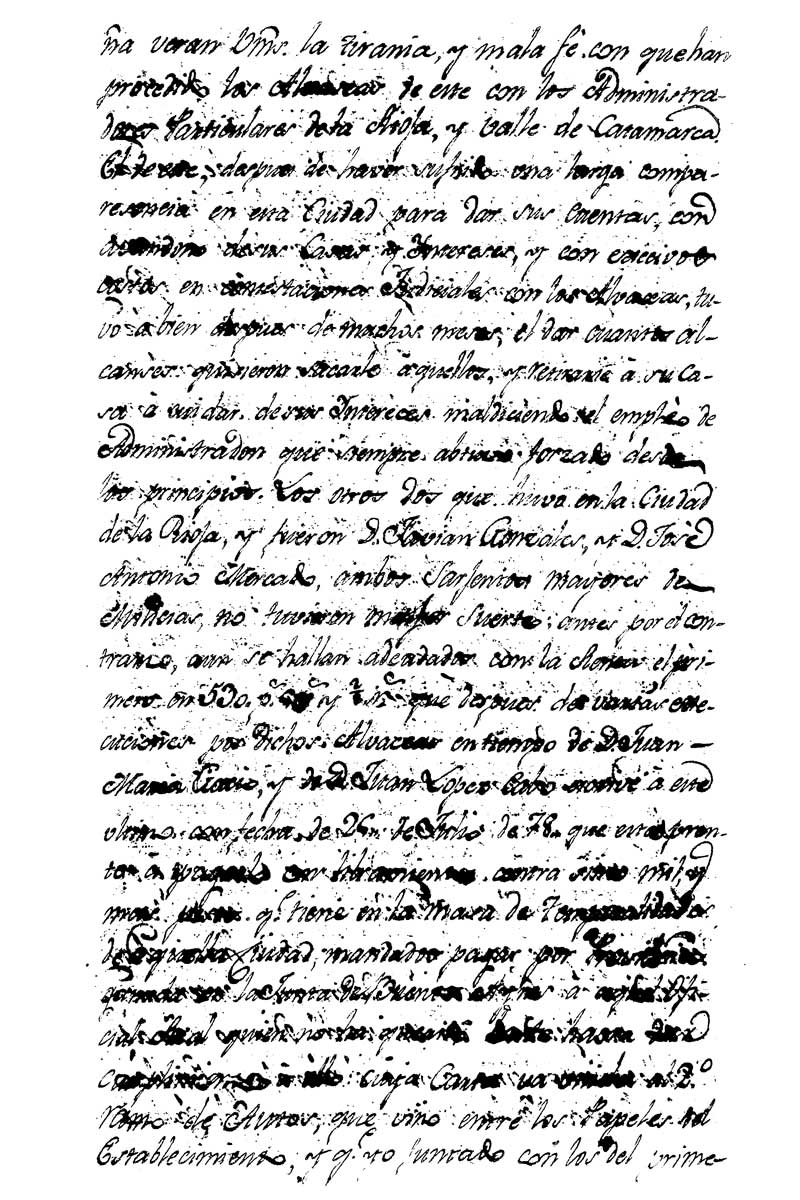 ña veran Vm̃s. la tirania, y mala fé con que han
procedido los Alvaseas de este con los Administra-
dores Particulares de la Rioja, y Valle de Catamarca.
El de este, despues de haver sufrido una larga compa-
resencia en esta Ciudad para dar sus Cuentas, con
abandono de sus Casas y Intereses, y con excecivos
costos en contestaciones Judiciales con los Alvaceas, tu-
vo á bien despues de muchos meses, el dar cuantos al-
canses quisieron sacarle á aquellos, y retirarse á su Ca-
sa á cuidar de sus Intereces maldiciendo el empléo de
Administrador que siempre obtuvo forzado desde
los principios. Los otros dos que huvo en la Ciudad
de la Rioja, y fueron D. Favian Gonzales, y D. José
Antonio Mercado, ambos Sarjentos mayores de
Milicias, no tuvieron mejor suerte; antes por el con-
trario, aun se hallan adeudados con la Renta el pri-
mero en 530. p.s y 2 r.s que despues de varias ege-
cuciones por dichos Alvaceas en tiempo de D. Juan
Maria, y de D. Juan Lopez Cobo escrive á este
ultimo con fecha de 26 de Julio de 78 que esta pron-
to á pagarlo con libramientos contra siete mil, y
mas pesos q.e tiene en la Masa de Temporalidades
de aquella Ciudad, mandados pagar por
ganada en la Junta de Buenos Ayres á aquel Ofi-
cial Real quien no ha querido darle hasta
cumplimiento á ello cuya Carta va unida al 2.o
ramo de Autos, que vino entre los Papeles del
Establecimiento, y q.e yo juntado con los del prime-